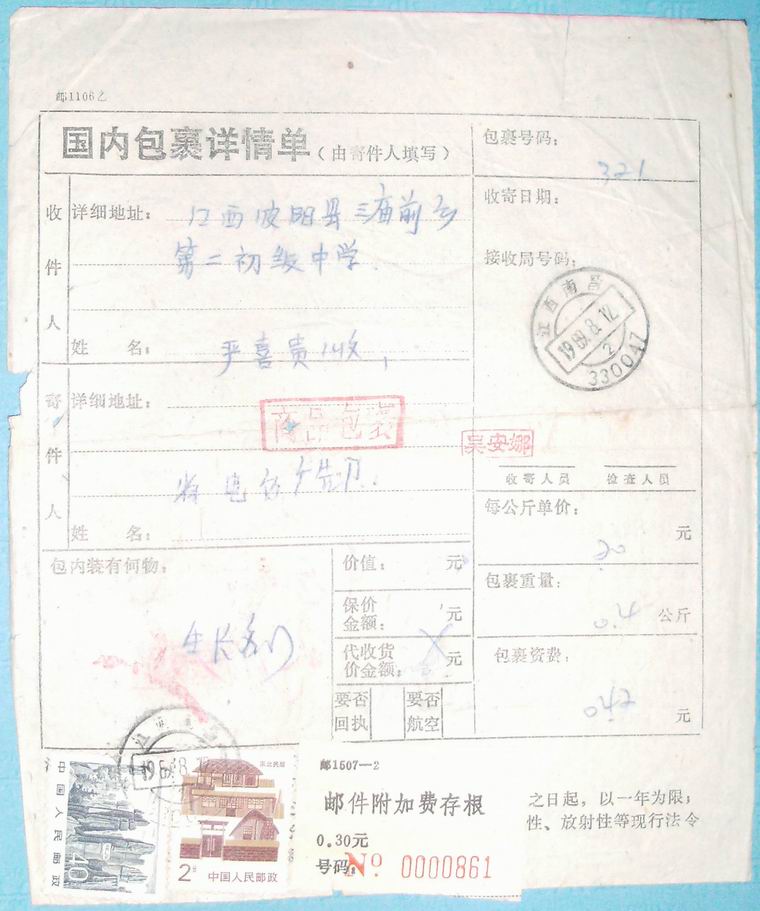 邮1106乙
国内包裹详情单(由寄件人填写)
包裹号码:
321
收件人
详细地址:江西波阳县三庙前乡
第二初级中学.
姓 名: 严喜贵 收
收寄日期:
接收局号码:
江西南昌
1989.8.12
2
330047
寄件人
详细地址:
商品包裹
吴安娜
姓 名:
收寄人员 检查人员
每公斤单价:
20 元
包内装有何物:
价值: 元
保价金额: 元
代收货价金额: 元
要否回执
要否航空
包裹重量:
0.4 公斤
包裹资费:
0.42 元
中国人民邮政
40
东北民居
2分 中国人民邮政
邮1507—2
邮件附加费存根
0.30元
号码: No 0000861
之日起,以一年为限;
性、放射性等现行法令